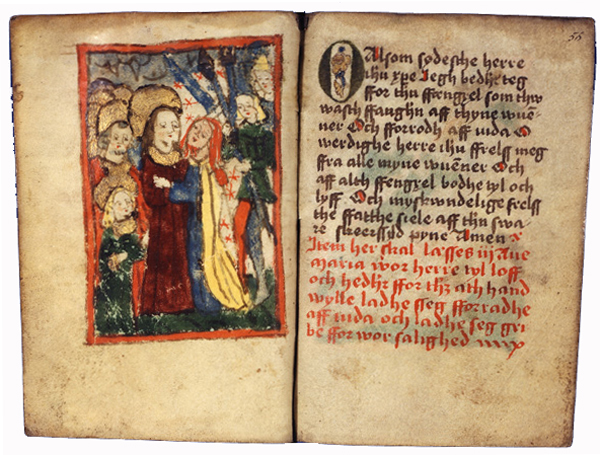 56
O Alsom sødesthe herre
ihu xpe Jegh bedher teg
ffor thu ffengzel som thw
wasth ffanghn aff thyne wue-
ner Och fforrodh aff iuda O
werdighe herre ihu ffrelss meg
ffra alle myne wuener Och
aff alth ffengxel bodhe tyl och
lyff Och myskwndelige frelss
the ffatthe siele aff thn swa-
re skeerssild pyne Amen
Item her skal læsses iij Aue
maria wor herre tyl loff
och hedhr ffor thz ath hand
wylle ladhe sseg fforradhe
aff iuda och ladhe seg gri-
be ffor wor salighed